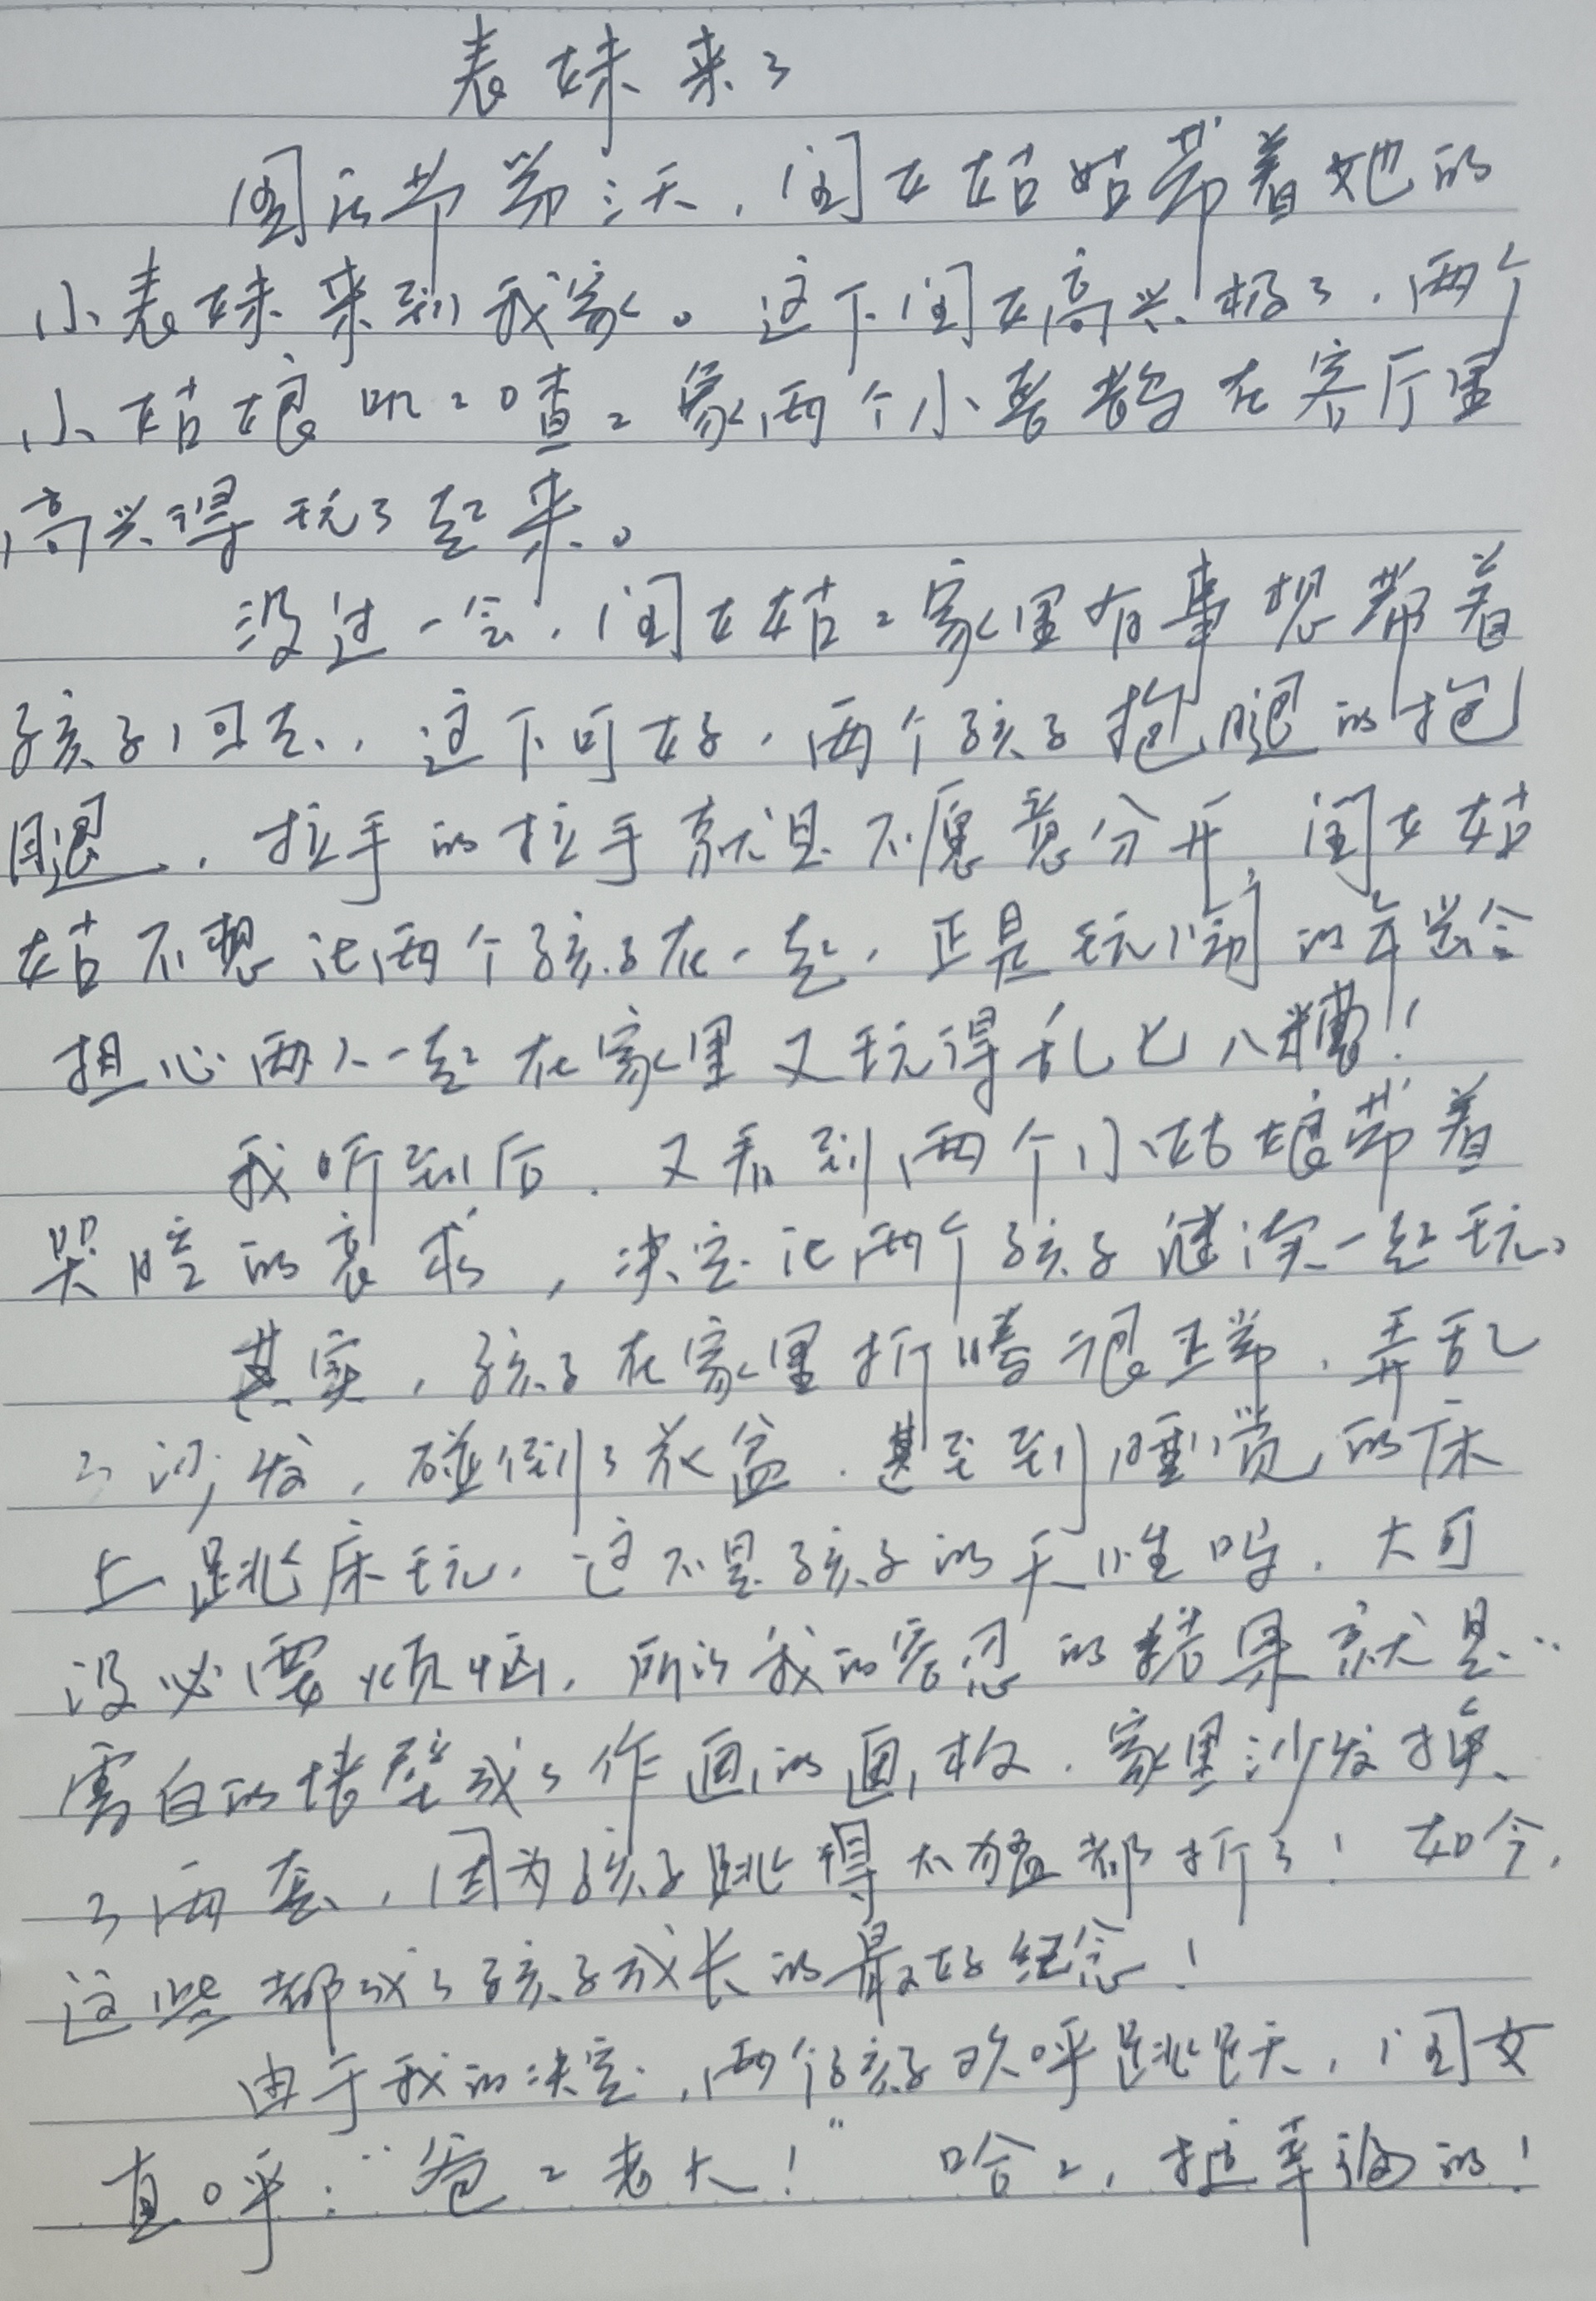 表妹来了
国庆节第三天，闺女姑姑带着她的
小表妹来到我家。这下闺女高兴极了，两个
小姑娘叽々喳々象两个小喜鹊在客厅里
高兴得玩了起来。
没过一会，闺女姑々家里有事想带着
孩子回去，这下可好，两个孩子抱腿的抱
腿，拉手的拉手就是不愿意分开，闺女姑
姑不想让两个孩子在一起，正是玩闹的年龄会
担心两人一起在家里又玩得乱七八糟！
我听到后，又看到两个小姑娘带着
哭腔的哀求，决定让两个孩子继续一起玩。
其实，孩子在家里折腾很正常，弄乱
了沙发，碰倒了花盆，甚至到睡觉的床
上跳床玩，这不是孩子的天性吗，大可
没必要烦恼，所以我的容忍的结果就是：
雪白的墙壁成了作画的画板，家里沙发换
了两套，因为孩子跳得太猛都折了！如今，
这些都成了孩子成长的最好纪念！
由于我的决定，两个孩子欢呼跳跃，闺女
直呼：“爸々老大！”哈々，挺幸福的！